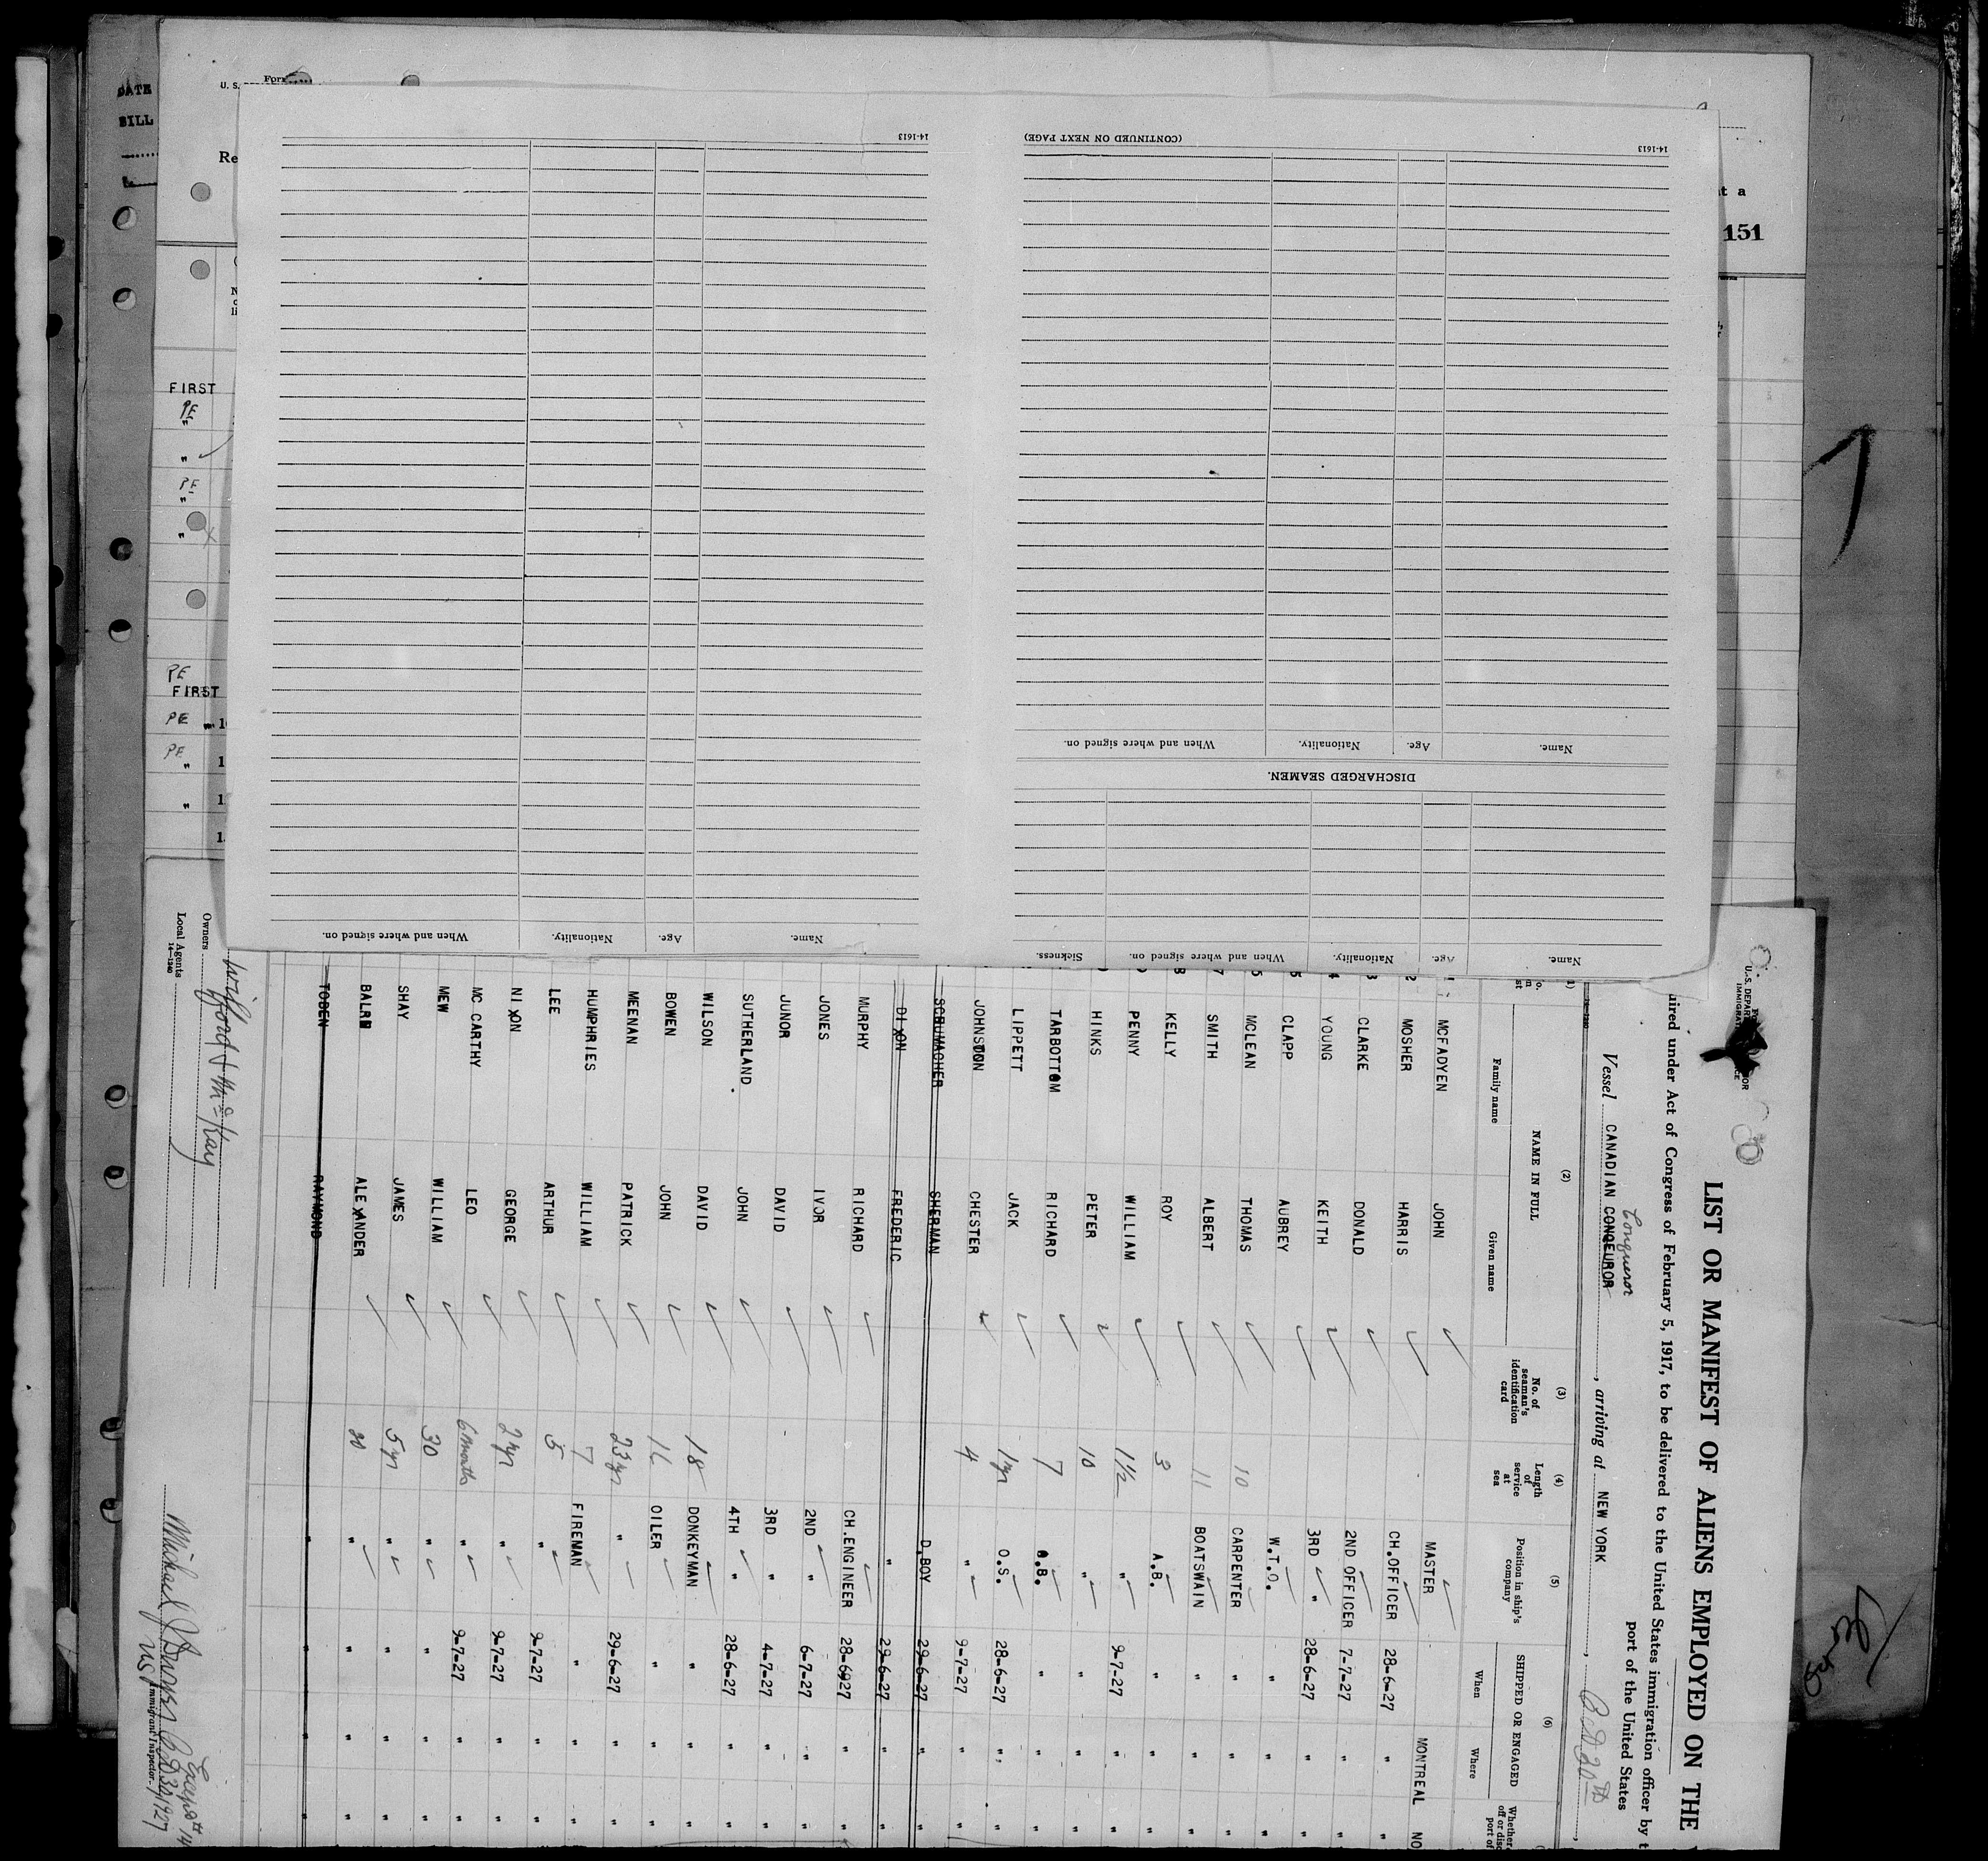 DATE
BILL
U. S.
Re
t a
151
FIRST
PE
"
"
PE
"
"
PE
FIRST
PE "
PE "
"
14-1613
14-1613
(CONTINUED ON NEXT PAGE)
Name. Age. Nationality. When and where signed on.
DISCHARGED SEAMEN.
Name. Age. Nationality. When and where signed on. Sickness.
Name. Age. Nationality. When and where signed on.
LIST OR MANIFEST OF ALIENS EMPLOYED ON THE
uired under Act of Congress of February 5, 1917, to be delivered to the United States immigration officer by t
port of the United States
Conqueror
Vessel CANADIAN CONQEUROR, arriving at NEW YORK
(2) (3) (4) (5) (6)
NAME IN FULL No. of seaman's identification card Length of service at sea Position in ship's company SHIPPED OR ENGAGED
Family name Given name When Where
MCFADYEN JOHN MASTER MONTREAL NO
MOSHER HARRIS CH.OFFICER 28-6-27 " "
CLARKE DONALD 2ND OFFICER 7-7-27 " "
YOUNG KEITH 3RD " 28-6-27 " "
CLAPP AUBREY W.T.O. " " "
MCLEAN THOMAS 10 CARPENTER " " "
SMITH ALBERT 11 BOATSWAIN " " "
KELLY ROY 3 A.B. " " "
PENNY WILLIAM 1½ " 9-7-27 " "
HINKS PETER 10 " " " "
TARBOTTOM RICHARD 7 A.B. " " "
LIPPETT JACK 1yr O.S. 28-6-27 " "
JOHNSTON CHESTER 4 " 9-7-27 " "
SCHUMACHER SHERMAN D.BOY 29-6-27 " "
DIXON FREDERIC " 29-6-27 " "
MURPHY RICHARD CH.ENGINEER 28-6-27 " "
JONES IVOR 2ND " 6-7-27 " "
JUNOR DAVID 3RD " 4-7-27 " "
SUTHERLAND JOHN 4TH " 28-6-27 " "
WILSON DAVID 18 DONKEYMAN " " "
BOWEN JOHN 16 OILER " " "
MEENAN PATRICK 23 yr " 29-6-27 " "
HUMPHRIES WILLIAM 7 FIREMAN " " "
LEE ARTHUR 5 " 9-7-27 " "
NIXON GEORGE 2 yr " 9-7-27 " "
MC CARTHY LEO 6 months " 9-7-27 " "
MEW WILLIAM 30 " " " "
SHAY JAMES 5 yr " " " "
BALRD ALEXANDER 20 " " " "
TOBEN RAYMOND " " " "
Owners
Local Agents
14-1240
Immigrant Inspector.